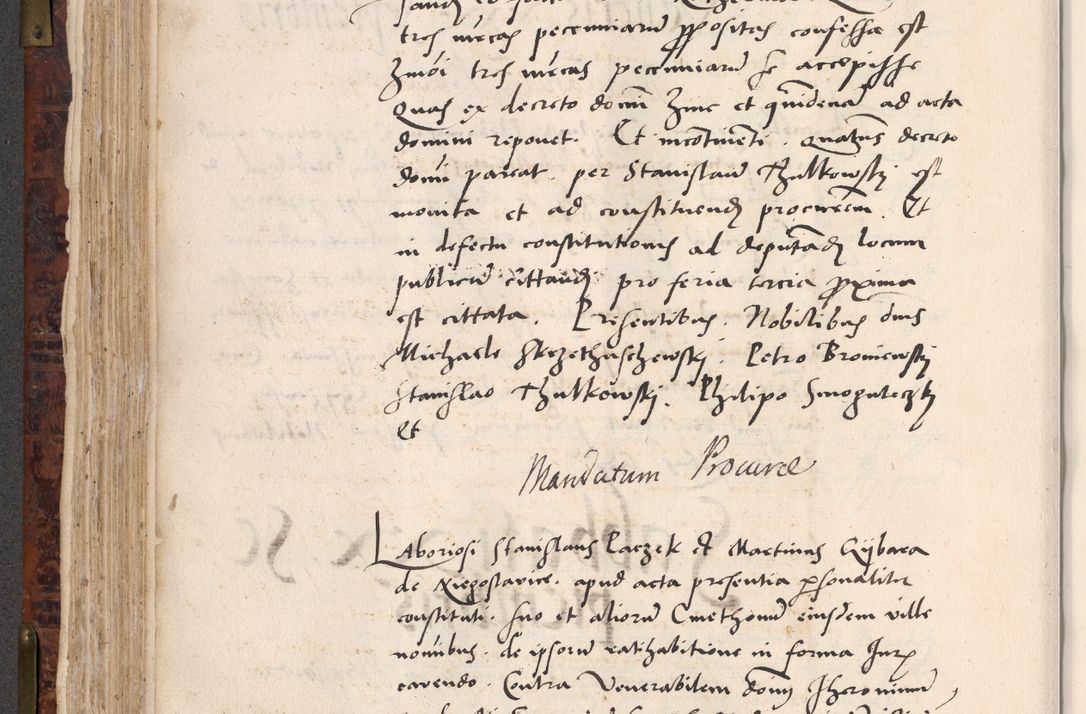 tres mrcas pecuniarũ ꝓpositas confessa est
Zmoi tres mrcas pecuniarũ se accepisse
Quas ex decreto domĩ hinc et quindenã ad acta
domini reponet. Et incõtinẽti. quatũs decreto
domi pareat. per Stanislaũ Thulkowskj est
monita et ad constituend procurem. Et
in defectu constitutionis ad deputãd locum
publicũ cittand pro feria tercia ꝓxima
est cittata. Presentibus. Nobilibus dnis
Michaele Petro Broniewskj
Stanislao Thulkowskj. Philipo Smoguleczkj
Et
Mandatum Procurae
Laboriosi Stanislaus Paczek Et Martinus Gybara
de apud acta presentia ꝑsonaliter
constituti. suo et aliorũ Cmethonũ eiusdem ville
nomibus. de ipsorũ ratihabitione in forma Jurȝ
cavendo. Contra Venerabilem domj Jheronimũ